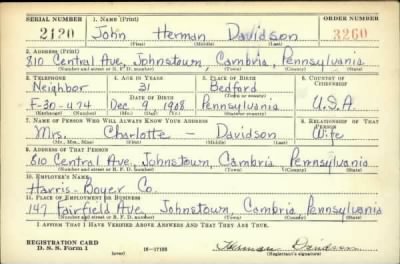 SERIAL NUMBER 1. NAME (Print) ORDER NUMBER
2120 John Herman Davidson 3260
(First) (Middle) (Last)
2. ADDRESS (Print)
810 Central Ave, Johnstown, Cambria, Pennsylvania
(Number and street or R. F. D. number) (Town) (County) (State)
3. TELEPHONE 4. AGE IN YEARS 5. PLACE OF BIRTH 6. COUNTRY OF CITIZENSHIP
Neighbor 31 Bedford
DATE OF BIRTH (Town or county)
F-30-474 Dec 9, 1908 Pennsylvania U.S.A.
7. NAME OF PERSON WHO WILL ALWAYS KNOW YOUR ADDRESS 8. RELATIONSHIP OF THAT PERSON
Mrs. Charlotte - Davidson Wife
(Mr., Mrs., Miss) (First) (Middle) (Last)
9. ADDRESS OF THAT PERSON
810 Central Ave, Johnstown, Cambria Pennsylvania
(Number and street or R. F. D. number) (Town) (County) (State)
10. EMPLOYER'S NAME
Harris-Boyer Co.
11. PLACE OF EMPLOYMENT OR BUSINESS
147 Fairfield Ave Johnstown, Cambria Pennsylvania
(Number and street or R. F. D. number) (Town) (County) (State)
I AFFIRM THAT I HAVE VERIFIED ABOVE ANSWERS AND THAT THEY ARE TRUE.
REGISTRATION CARD
D. S. S. Form 1 (over) 16-17105 Herman Davidson
(Registrant's signature)